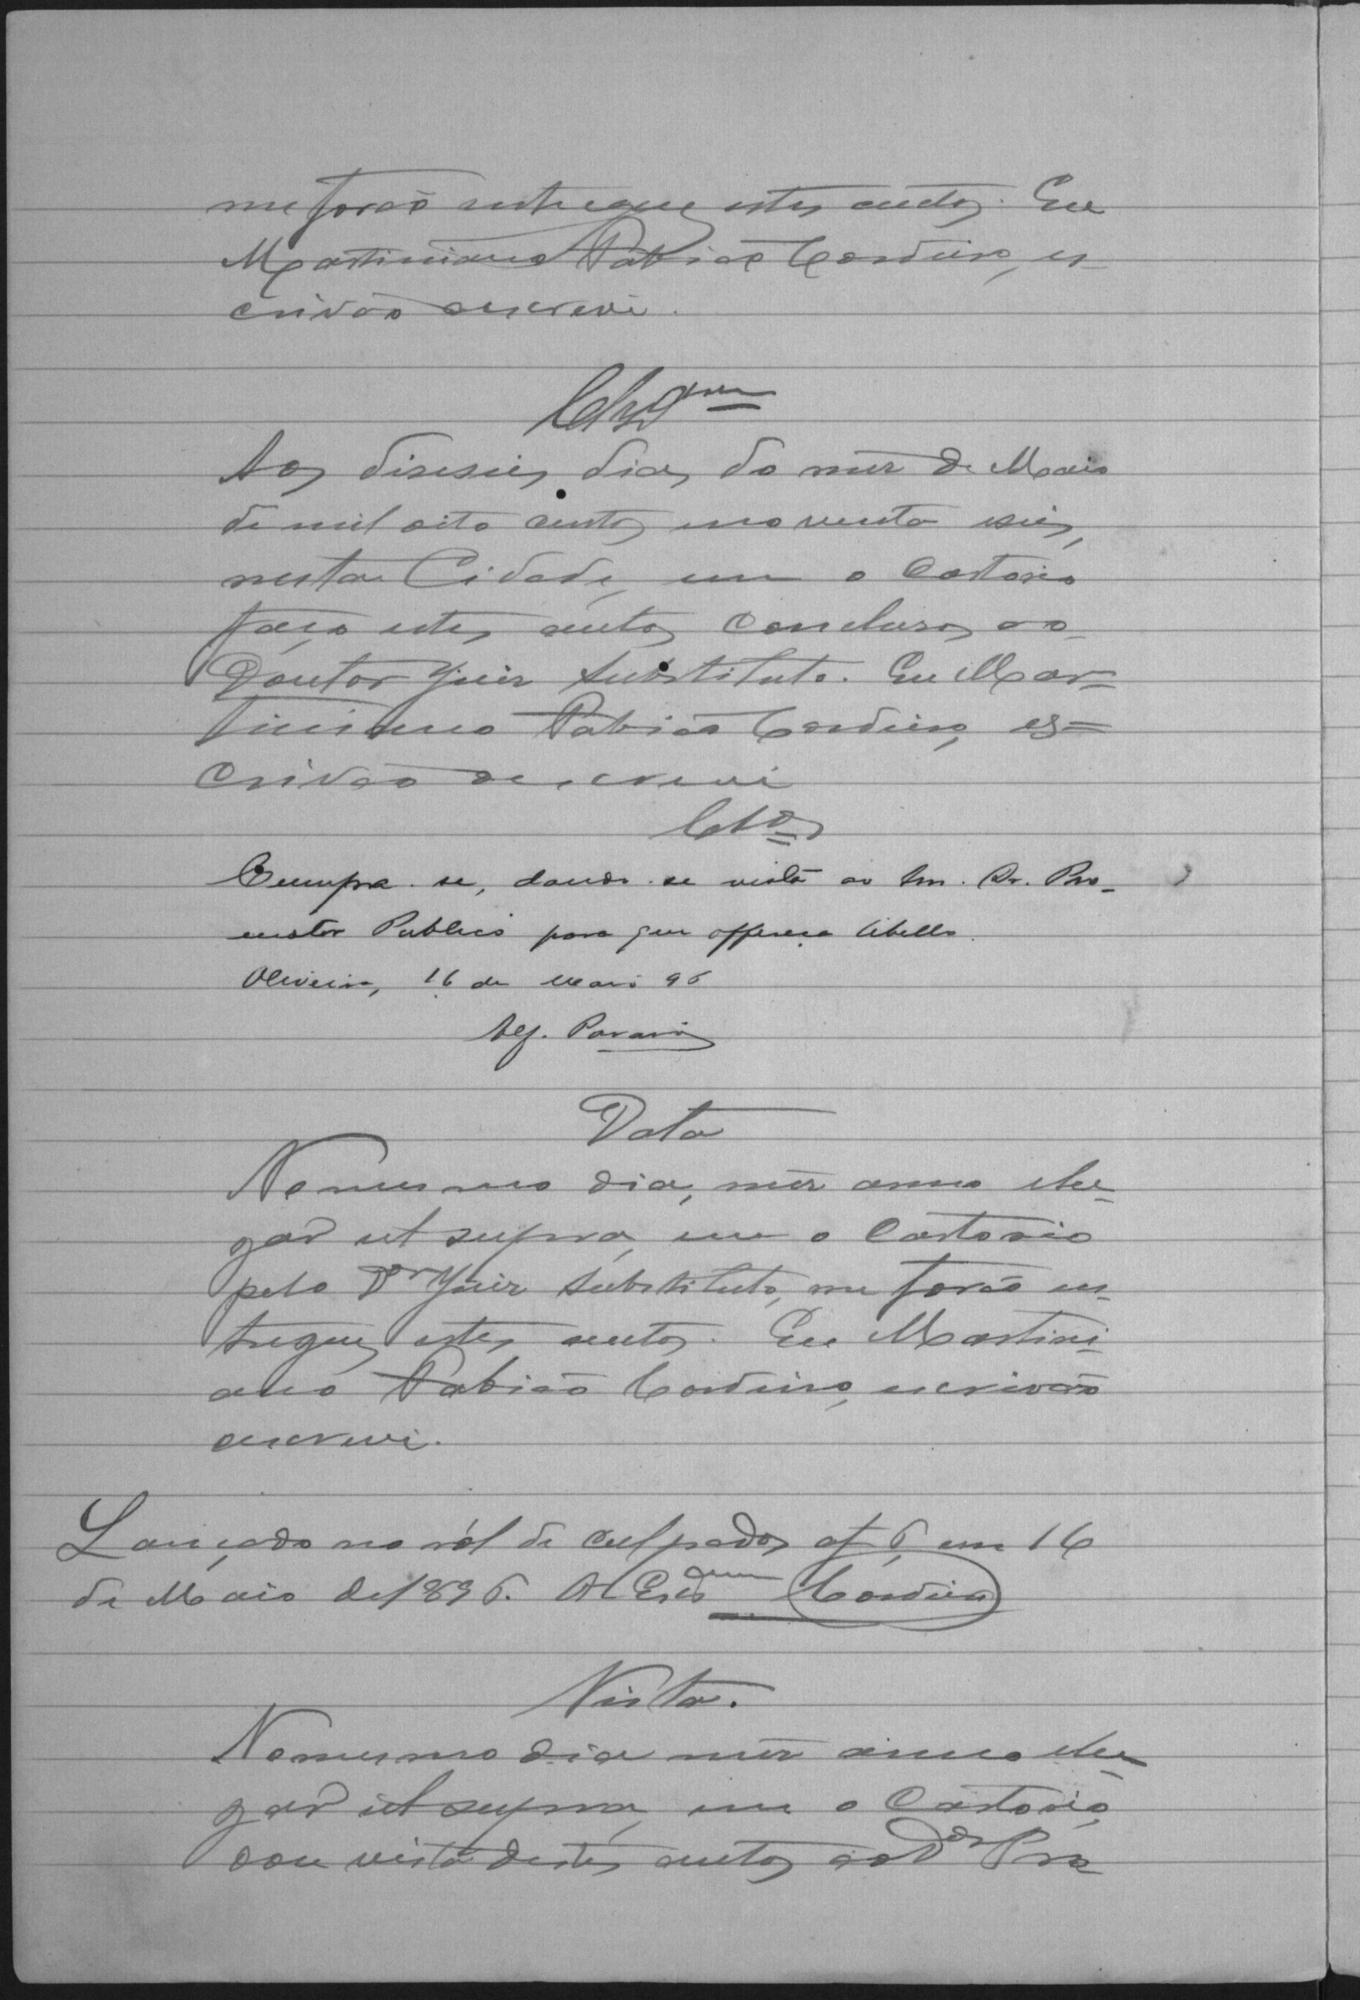 me forão entregues estes autos. Eu
Martiniano Fabião Cordeiro, es-
crivão escrevi.
Clsam
Aos diseseis dias do mez de Maio
de mil oito centos noventa seis,
nesta Cidade, em o Cartorio
faço estes autos conclusos ao
Doutor Juiz Substituto. Eu Mar-
tiniano Fabião Cordeiro, es=
crivão o escrevi
Clsos
Cumpra-se, dando-se vista ao Snr. Dr. Pro-
motor Publico para que offereça libello.
Oliveira, 16 de Maio 96
Nomesmo dia, mez anno elu-
Data
Nomesmo dia, mez anno e lu-
gar ut supra, em o Cartorio
pelo Dr Juiz Substituto, me forão en-
tregues estes autos. Eu Martini-
ano Fabião Cordeiro, escrivão
escrevi.
Lançado no ról de culpados af 6, em 16
de Maio de 1896. O Escam Cordeiro
Vista.
Nomesmo dia mez anno e lu-
gar ut supra, em o Cartorio,
dou vista destes autos ao Dor Pro